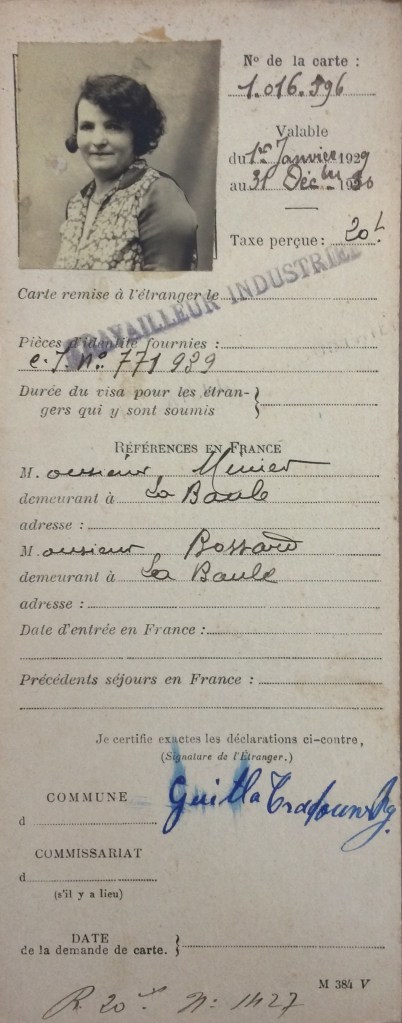 N° de la carte :
1.016.596
Valable
du 1er Janvier 1929
au 31 Décbre 1930
Taxe perçue : 20 f.
TRAVAILLEUR INDUSTRIEL
Carte remise à l'étranger le
Pièces d'identité fournies :
c.I. N° 771 939
Durée du visa pour les étran-
gers qui y sont soumis
RÉFÉRENCES EN FRANCE
M. onsieur
demeurant à La Baule
adresse :
M. onsieur Bossard
demeurant à La Baule
adresse :
Date d'entrée en France :
Précédents séjours en France :
Je certifie exactes les déclarations ci-contre,
(Signature de l'Étranger.)
COMMUNE
d
COMMISSARIAT
d
(s'il y a lieu)
DATE
de la demande de carte.
M 384 V
N° 1427